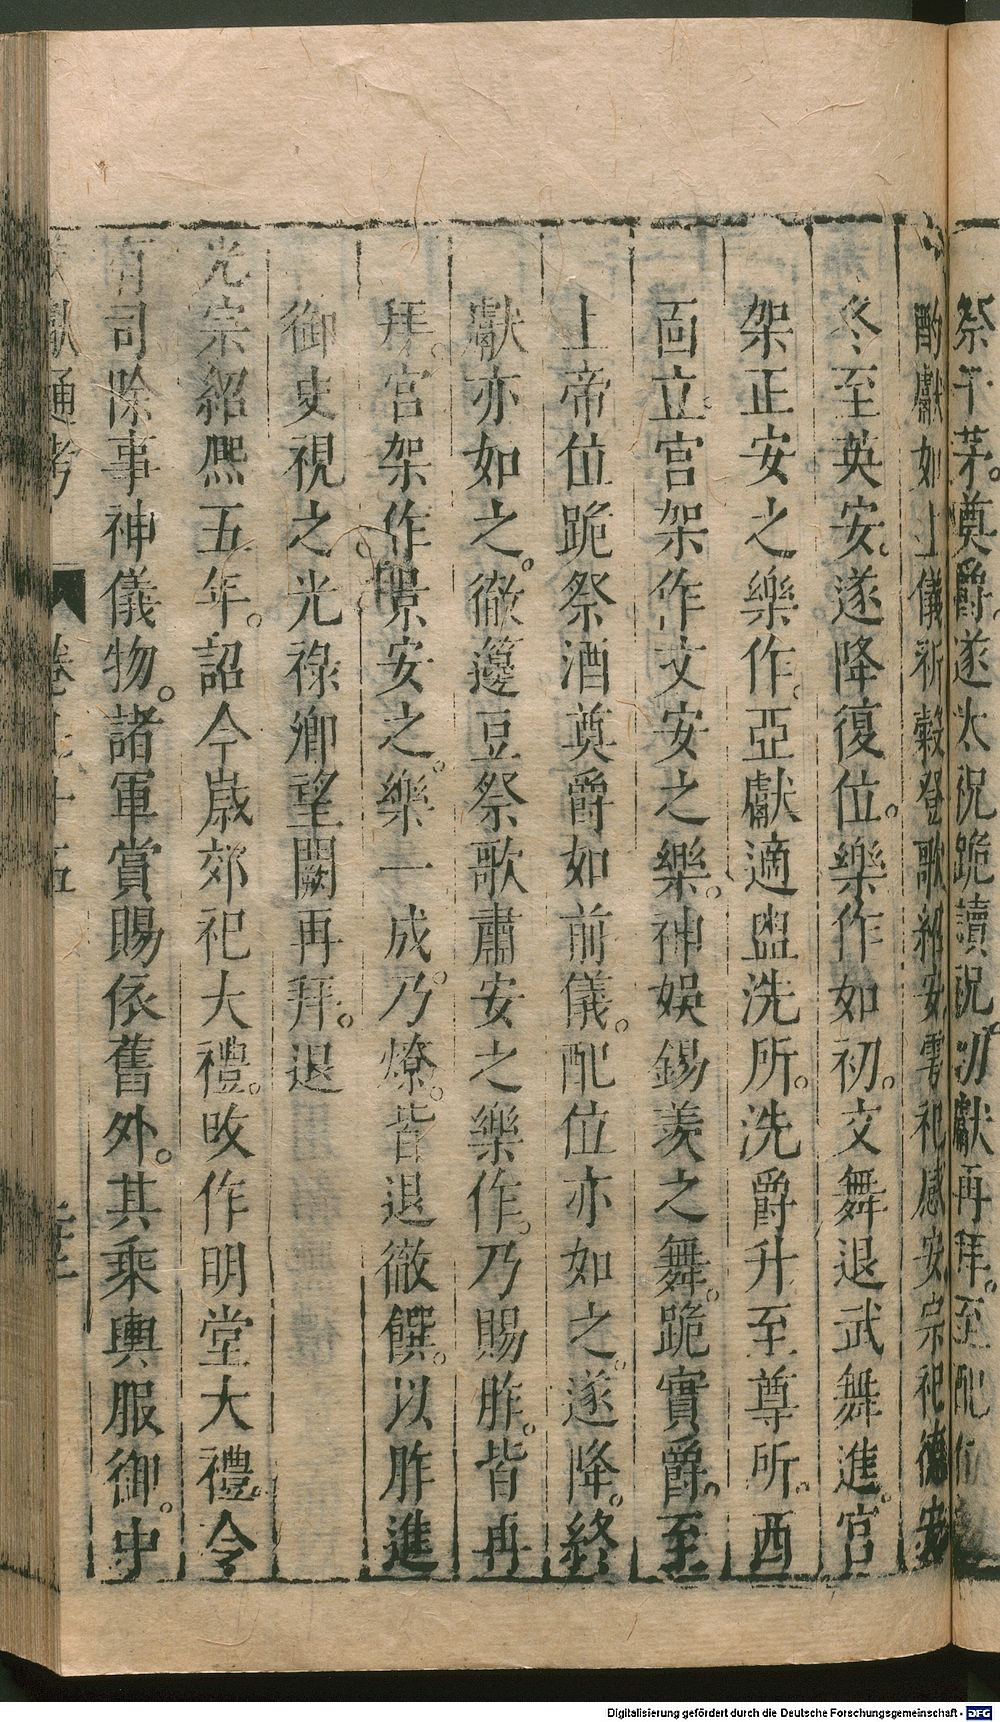 祭于茅。奠爵。遂太祝跪讀祝。初獻再拜。至配位
酌獻如上儀祈穀登歌紹安雩祀感安宗祀德安
冬至英安。遂降復位。樂作如初。文舞退武舞進。宮
架正安之樂作。亞獻適盥洗所。洗爵升至尊所。西
靣立宮架作文安之樂。神娛錫羨之舞。跪實爵。至
上帝位跪祭酒奠爵如前儀。配位亦如之。遂降。終
獻亦如之。徹籩豆祭歌肅安之樂作。乃賜胙。皆再
拜。宮架作景安之樂一成。乃燎。皆退徹饌。以胙進
御史視之。光祿卿望闕再拜。退
光宗紹熙五年。詔今歲郊祀大禮。改作明堂大禮。令
有司除事神儀物。諸軍賞賜依舊外。其乘輿服御。中
獻通考 卷七十五
Digitalisierung gefördert durch die Deutsche Forschungsgemeinschaft - DFG